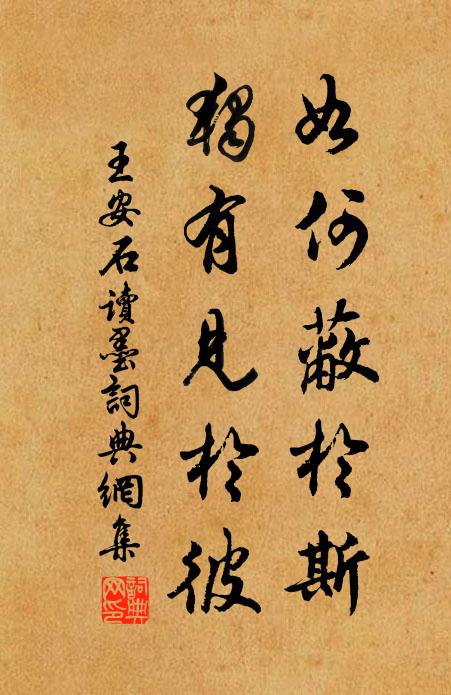 如何蔽於斯
獨有見於彼
王安石讀墨詞典網集
詞典網印